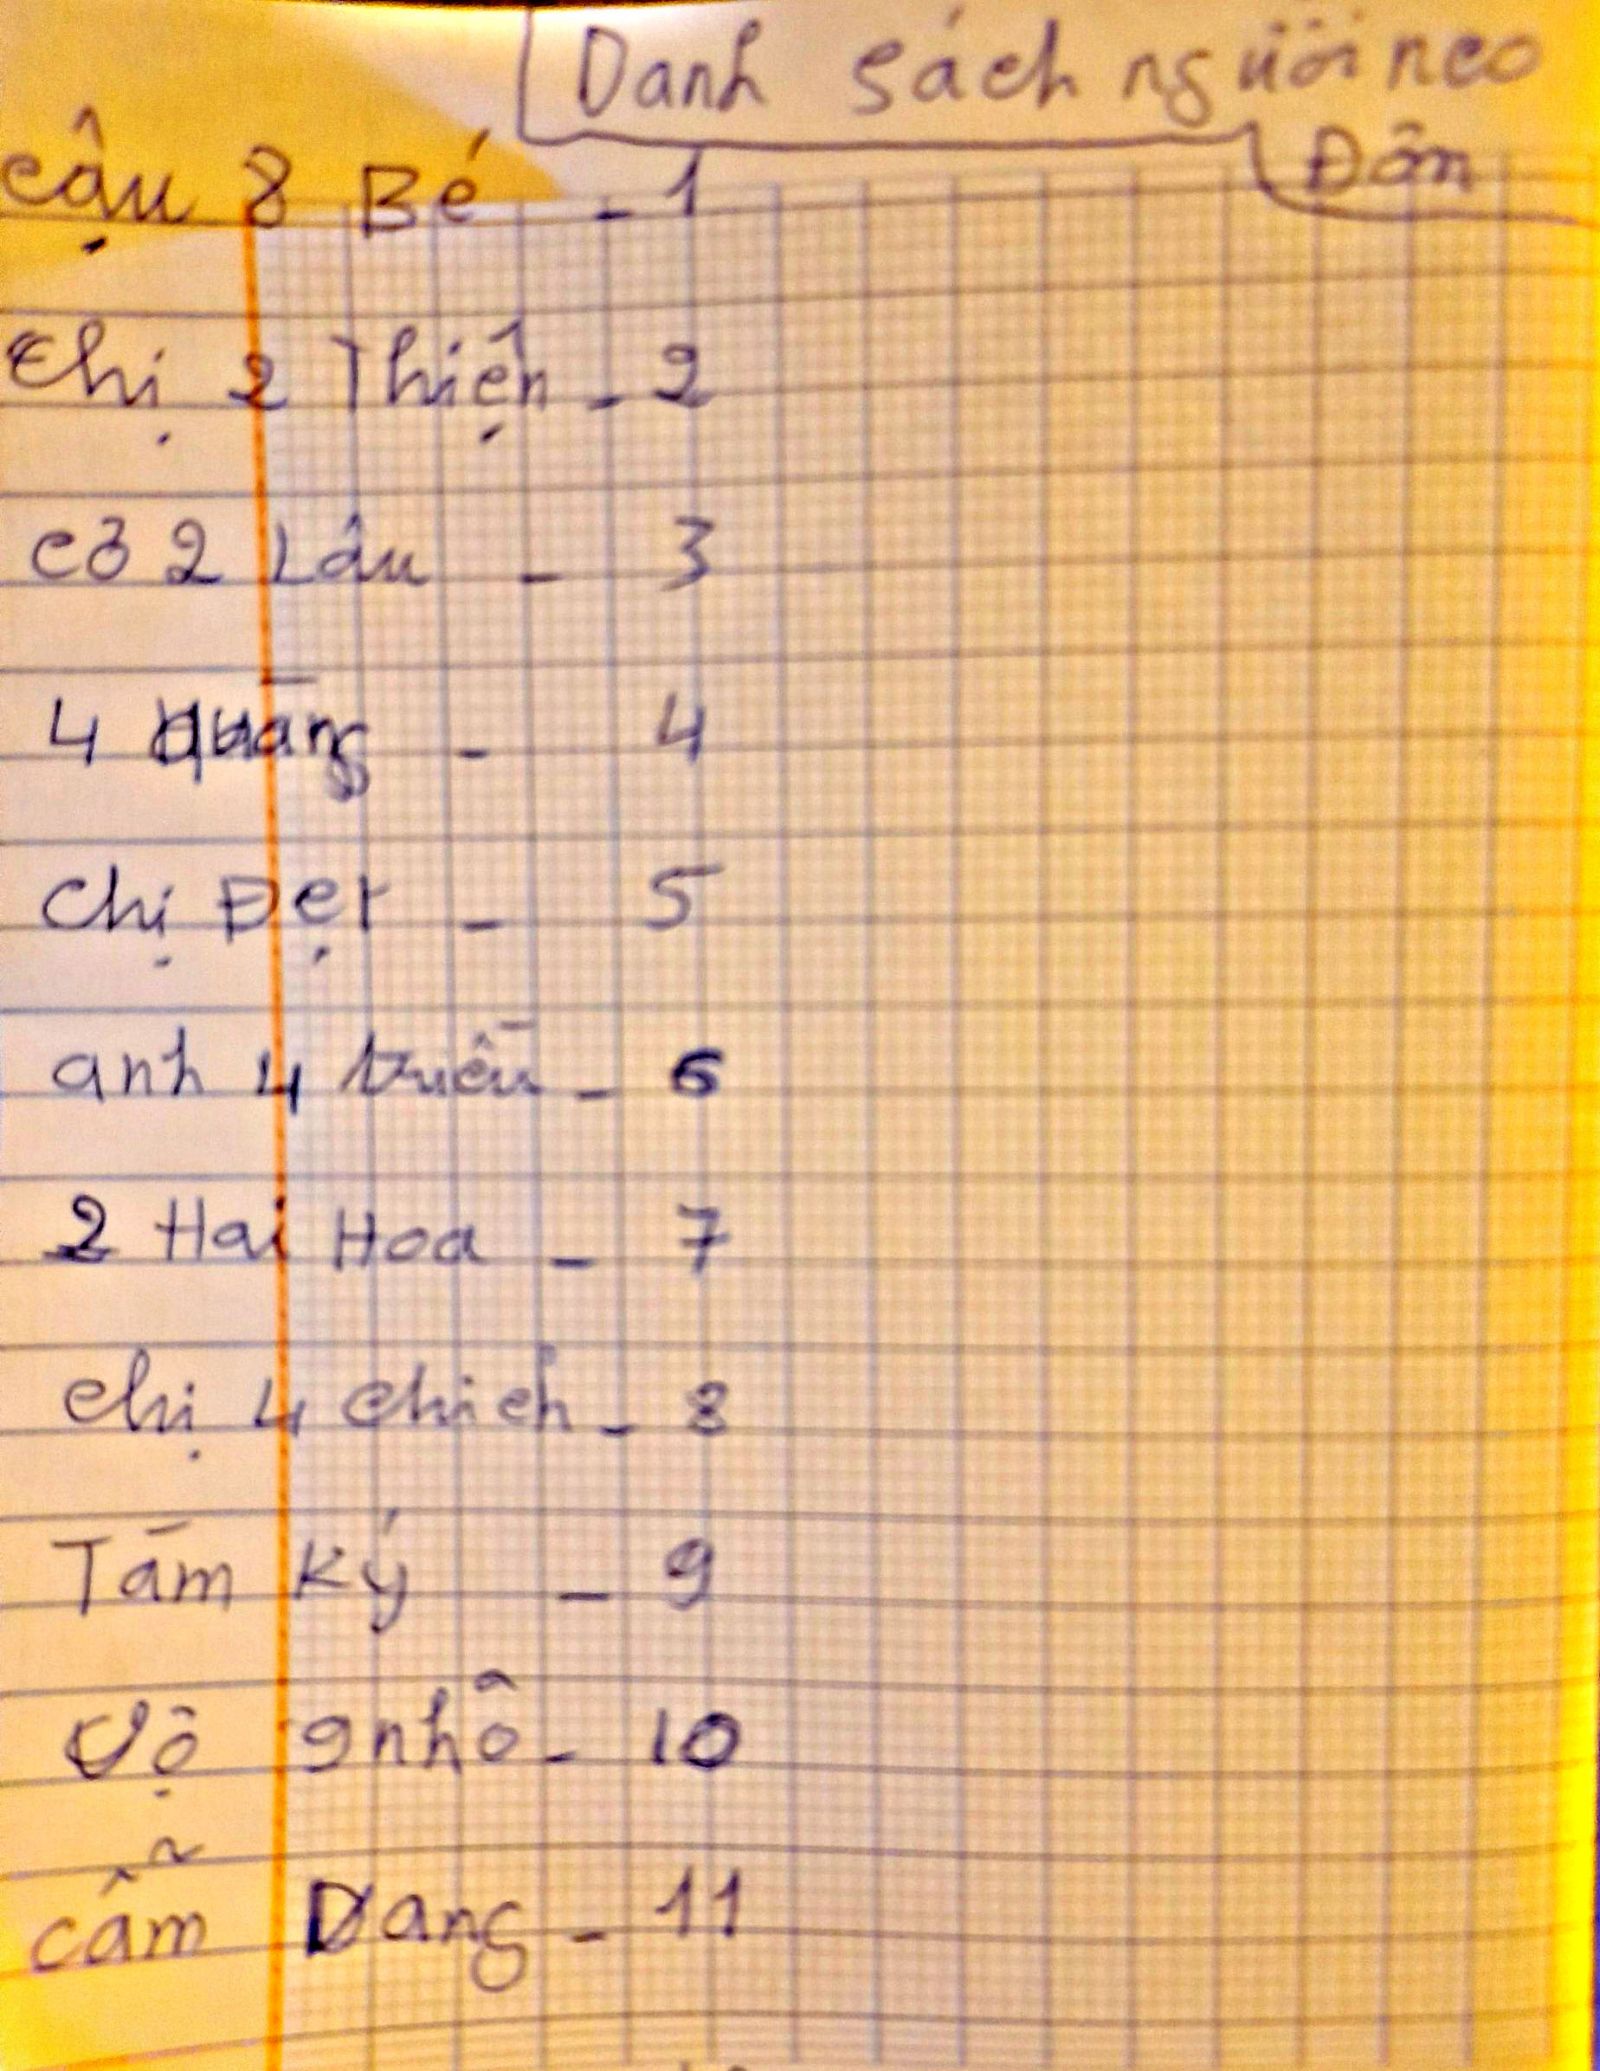 Danh sách người neo
Đơn
Cậu 8 Bé - 1
Chị 2 Thiện - 2
Cô 2 Lâu - 3
4 Quãng - 4
Chị Đẹt - 5
anh 4 triều - 6
2 Hai Hoa - 7
Chị 4 Chích - 8
Tám Ký - 9
Vợ 9 nhô - 10
Cẩm Dang - 11